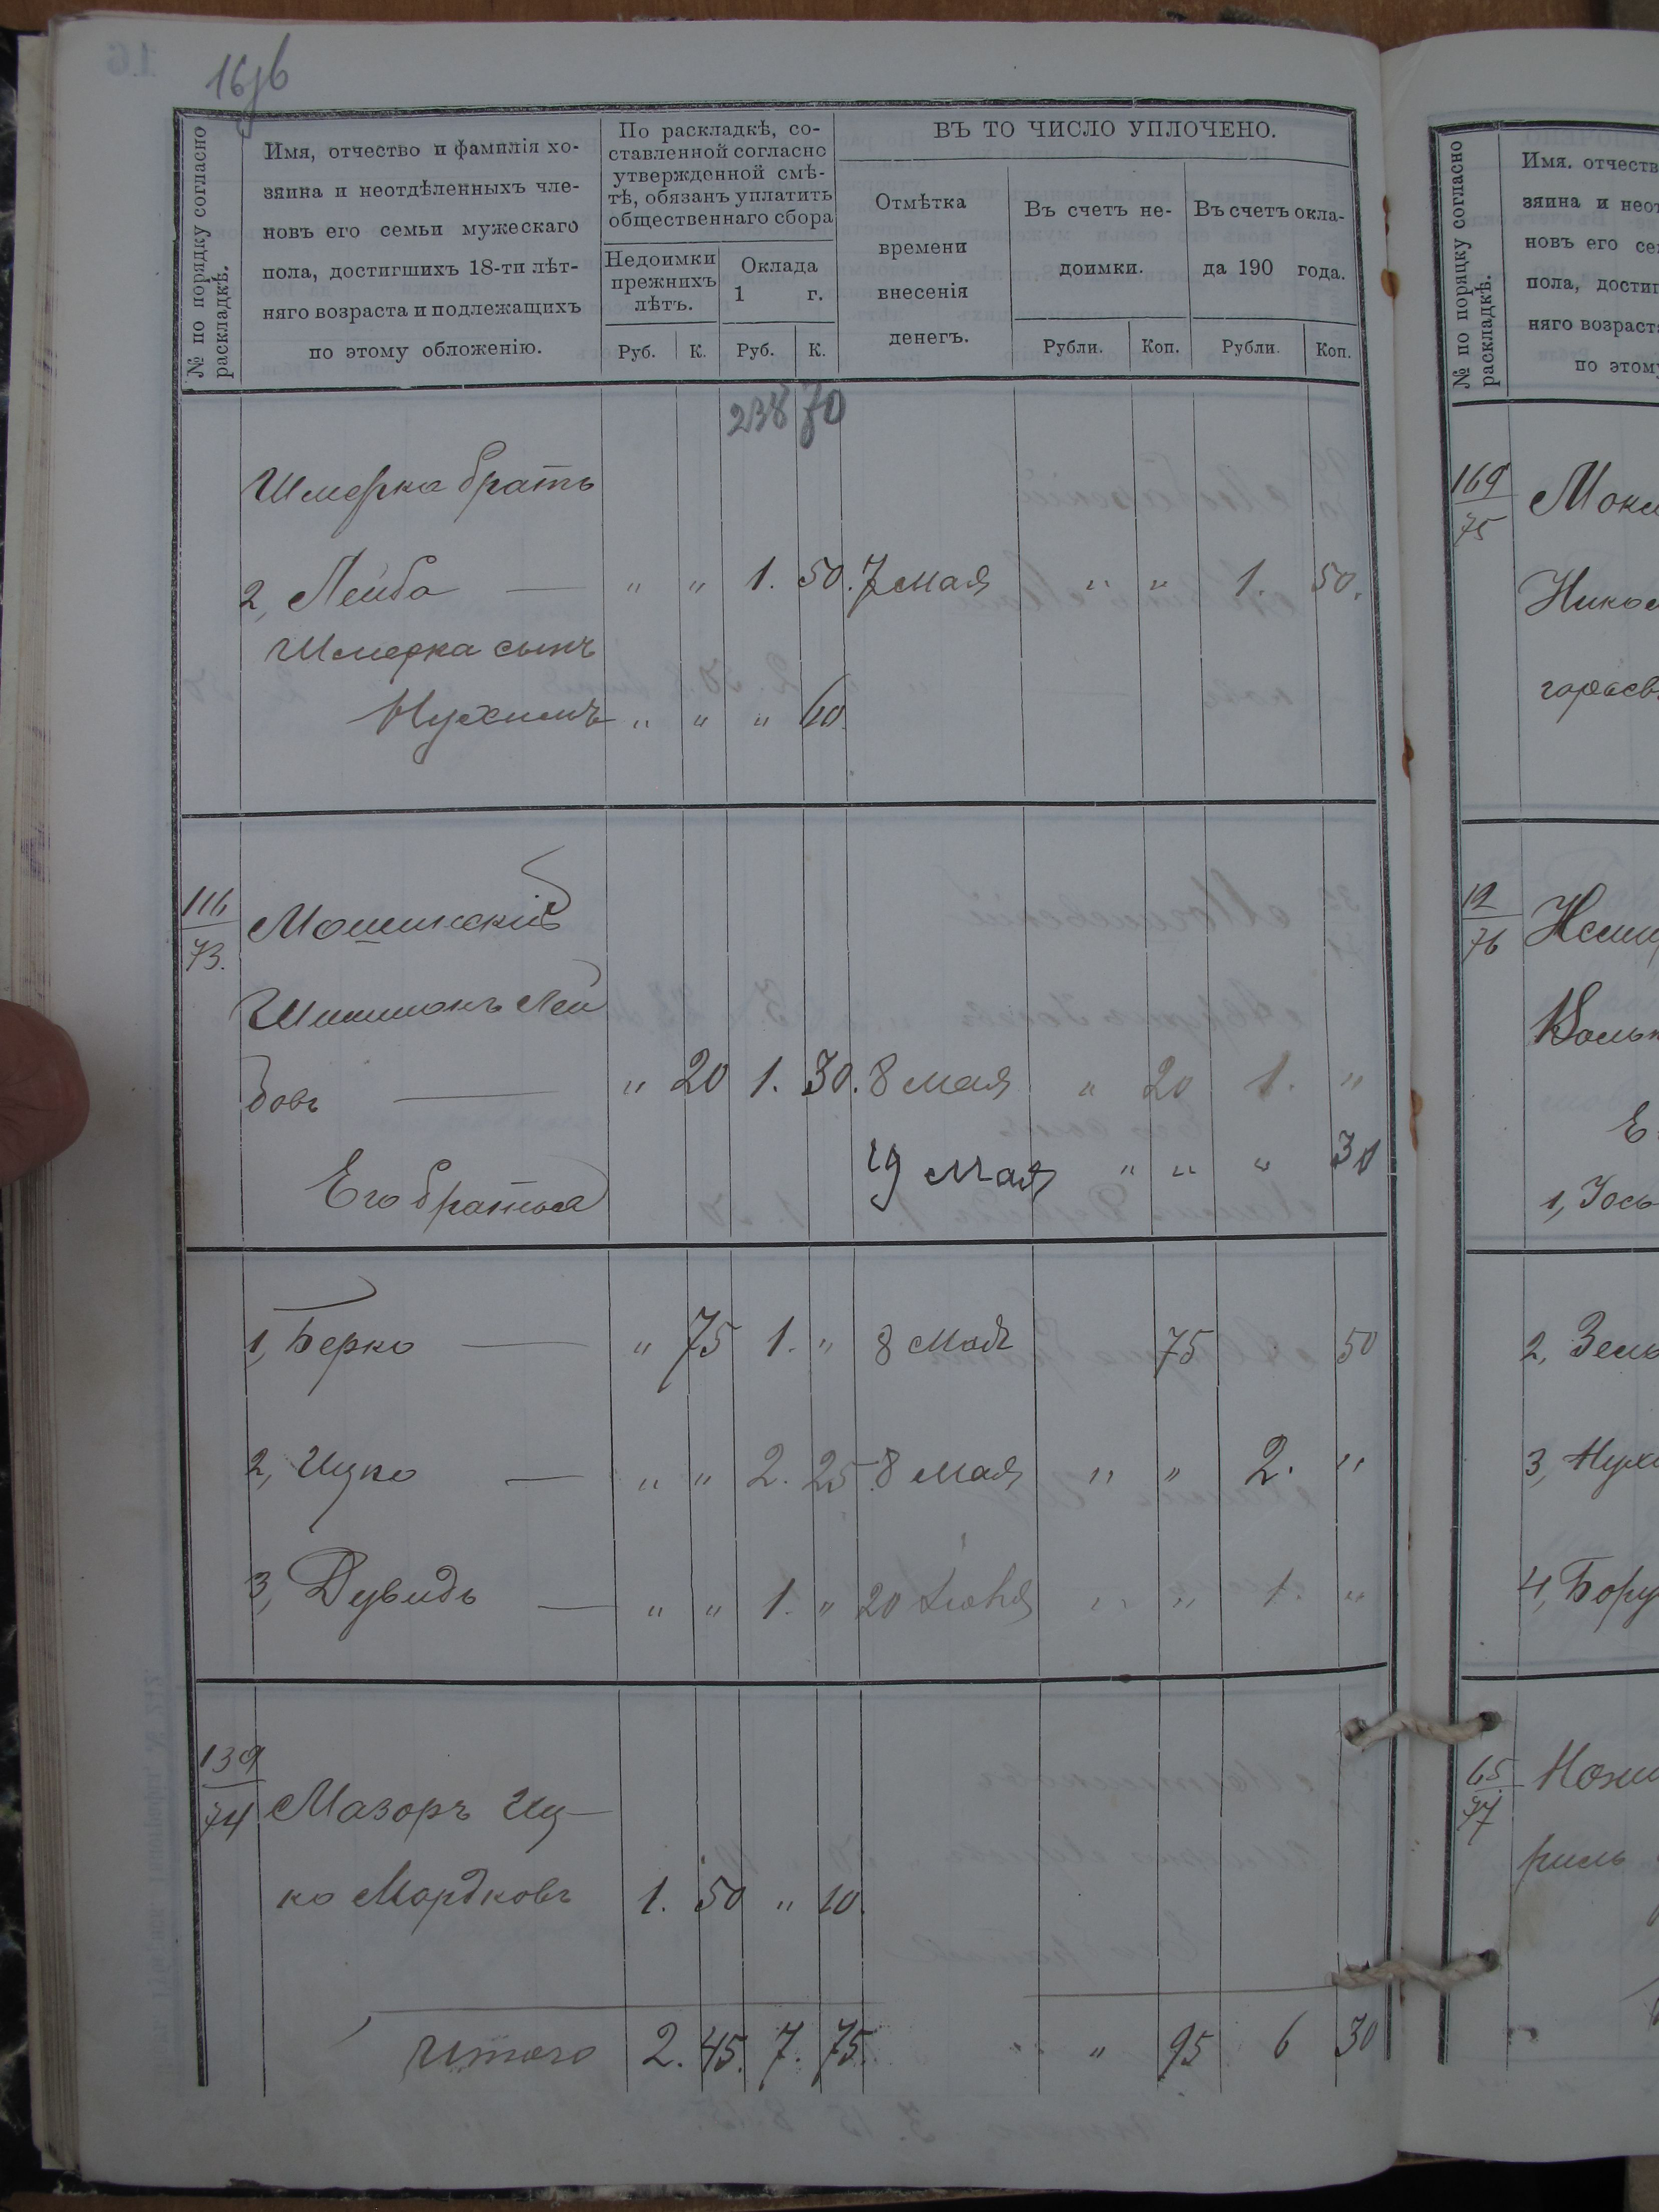 16
№ по порядку согласно раскладкѣ.
Имя, отчество и фамилія хо-
зяина и неотдѣленныхъ чле-
новъ его семьи мужескаго
пола, достигшихъ 18-ти лѣт-
няго возраста и подлежащихъ
по этому обложенію.
По раскладкѣ, со-
ставленной согласно
утвержденной смѣ-
тѣ, обязанъ уплатить
общественнаго сбора
Недоимки
прежнихъ
лѣтъ.
Оклада
1 г.
Руб. К. Руб. К.
ВЪ ТО ЧИСЛО УПЛОЧЕНО.
Отмѣтка
времени
внесенія
денегъ.
Въ счетъ не-
доимки.
Рубли. Коп.
Въ счетъ окла-
да 190 года.
Рубли. Коп.
238 70
Шмерка братъ
2, Лейба — " " 1. 50. 7 мая " " 1. 50.
Шмерка сынъ
Нухимъ " " " 60.
116
73.
Мошинскій
Шимшонъ Лей
бовъ — " 20 1. 30. 8 мая " 20 1. "
Его братья 19 мая " " " 30
1, Берко — " 75 1. " 8 мая 75 50
2, Ицко — " " 2. 25. 8 мая " " 2. "
3, Дувидъ — " " 1. " 20 Іюня " " 1. "
139
74
Мазоръ Иц-
ко Мордковъ 1. 50 " 10.
Итого 2. 45. 7. 75. " 95 6 30
№ по порядку согласно раскладкѣ.
Имя. отчеств
зяина и неот
новъ его се
пола, достиг
няго возраст
по этому
169
75
Нико
12
76
Е
1, Іось
2, Зель
3, Нухи
4, Бору
65
77